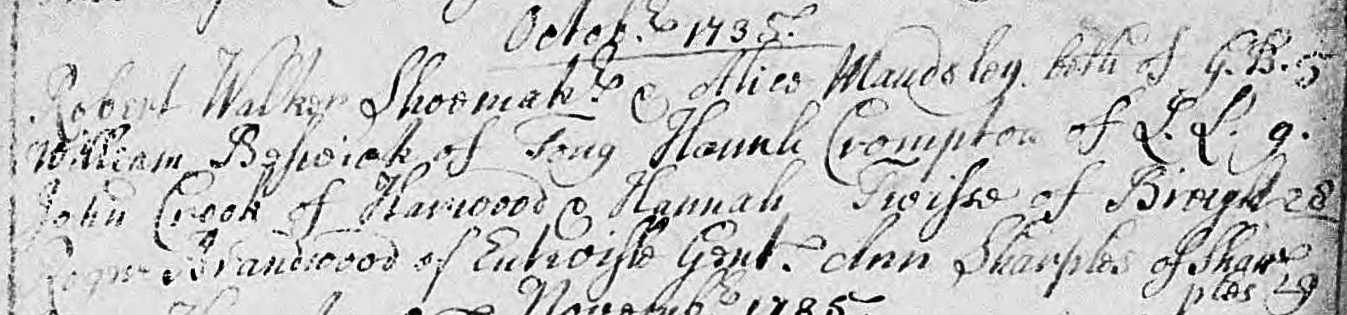 Octobr. 1735.
Robert Walker Shoemakr. & Alice Maudsley both of G.B. 5
William Beswick of Tong Hannah Crompton of L. L. 9.
John Crook of Harwood & Hannah Twisse of Breight 28
Roger Brandwood of Entwisle Gent. Ann Sharples of Shar
ples 29
Novembr. 1735